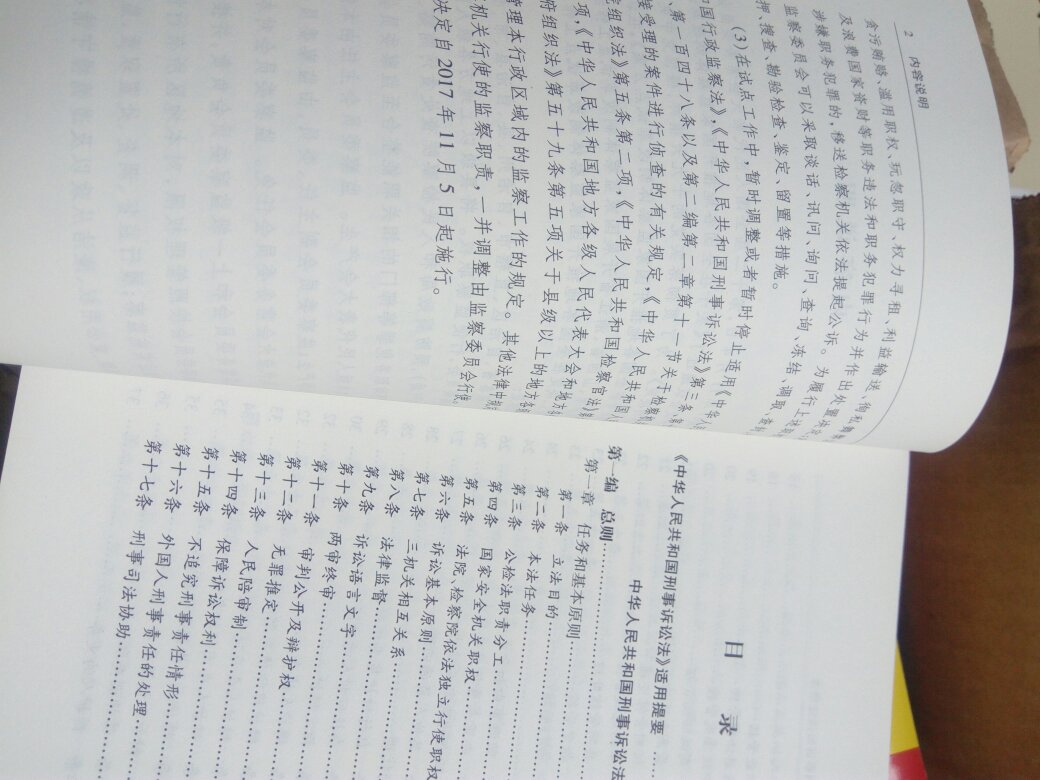 2 内容说明
贪污贿赂、滥用职权、玩忽职守、权力寻租、利益输送、徇私舞弊
及浪费国家资财等职务违法和职务犯罪行为并作出处置决定
涉嫌职务犯罪的,移送检察机关依法提起公诉。为履行上述职
监察委员会可以采取谈话、讯问、询问、查询、冻结、调取、查封
押、搜查、勘验检查、鉴定、留置等措施。
(3)在试点工作中,暂时调整或者暂时停止适用《中华人
和国行政监察法》,《中华人民共和国刑事诉讼法》第三条、第
、第一百四十八条以及第二编第二章第十一节关于检察机
接受理的案件进行侦查的有关规定,《中华人民共和国
院组织法》第五条第二项,《中华人民共和国检察官法》第
项,《中华人民共和国地方各级人民代表大会和地方各
府组织法》第五十九条第五项关于县级以上的地方各
管理本行政区域内的监察工作的规定。其他法律中规
机关行使的监察职责,一并调整由监察委员会行使
决定自2017年11月5日起施行。
目 录
《中华人民共和国刑事诉讼法》适用提要
中华人民共和国刑事诉讼法
第一编 总则
第一章 任务和基本原则
第一条 立法目的
第二条 本法任务
第三条 公检法职责分工
第四条 国家安全机关职权
第五条 法院、检察院依法独立行使职权
第六条 诉讼基本原则
第七条 三机关相互关系
第八条 法律监督
第九条 诉讼语言文字
第十条 两审终审
第十一条 审判公开及辩护权
第十二条 无罪推定
第十三条 人民陪审制
第十四条 保障诉讼权利
第十五条 不追究刑事责任情形
第十六条 外国人刑事责任的处理
第十七条 刑事司法协助